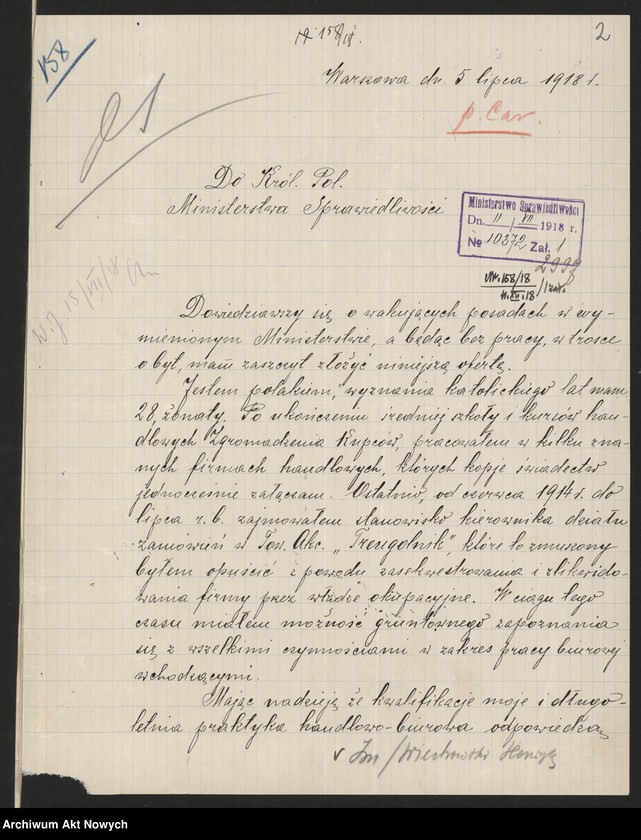 158
№ 158/II.
2
Warszawa dn. 5 lipca 1918 r.
p. Car.
Do Król. Pol.
Ministerstwa Sprawiedliwości
Ministerstwo Sprawiedliwości
Dn. 11/VII 1918 r.
№ 10372 Zał. 1
2993
Nr. 158/18
11.VII.18
W.J 15/VII/18
Dowiedziawszy się o wakujących posadach w wy-
mienionym Ministerstwie, a będąc bez pracy, w trosce
o byt, mam zaszczyt złożyć niniejszą ofertę.
Jestem polakiem, wyznania katolickiego lat mam
28, żonaty. Po ukończeniu średniej szkoły i kursów han-
dlowych Zgromadzenia Kupców, pracowałem w kilku zna-
nych firmach handlowych, których kopje świadectw
jednocześnie załączam. Ostatnio, od czerwca 1914 r. do
lipca r. b. zajmowałem stanowisko kierownika działu
zamówień w Tow. Akc. „Treugolnik", które to zmuszony
byłem opuścić z powodu zasekwestrowania i zlikwido-
wania firmy przez władze okupacyjne. W ciągu tego
czasu miałem możność gruntownego zapoznania
się z wszelkimi czynnościami w zakres pracy biurowej
wchodzącymi.
Mając nadzieję że kwalifikacje moje i długo-
letnia praktyka handlowo-biurowa odpowiedzą
Wiechowski Henryk
Archiwum Akt Nowych